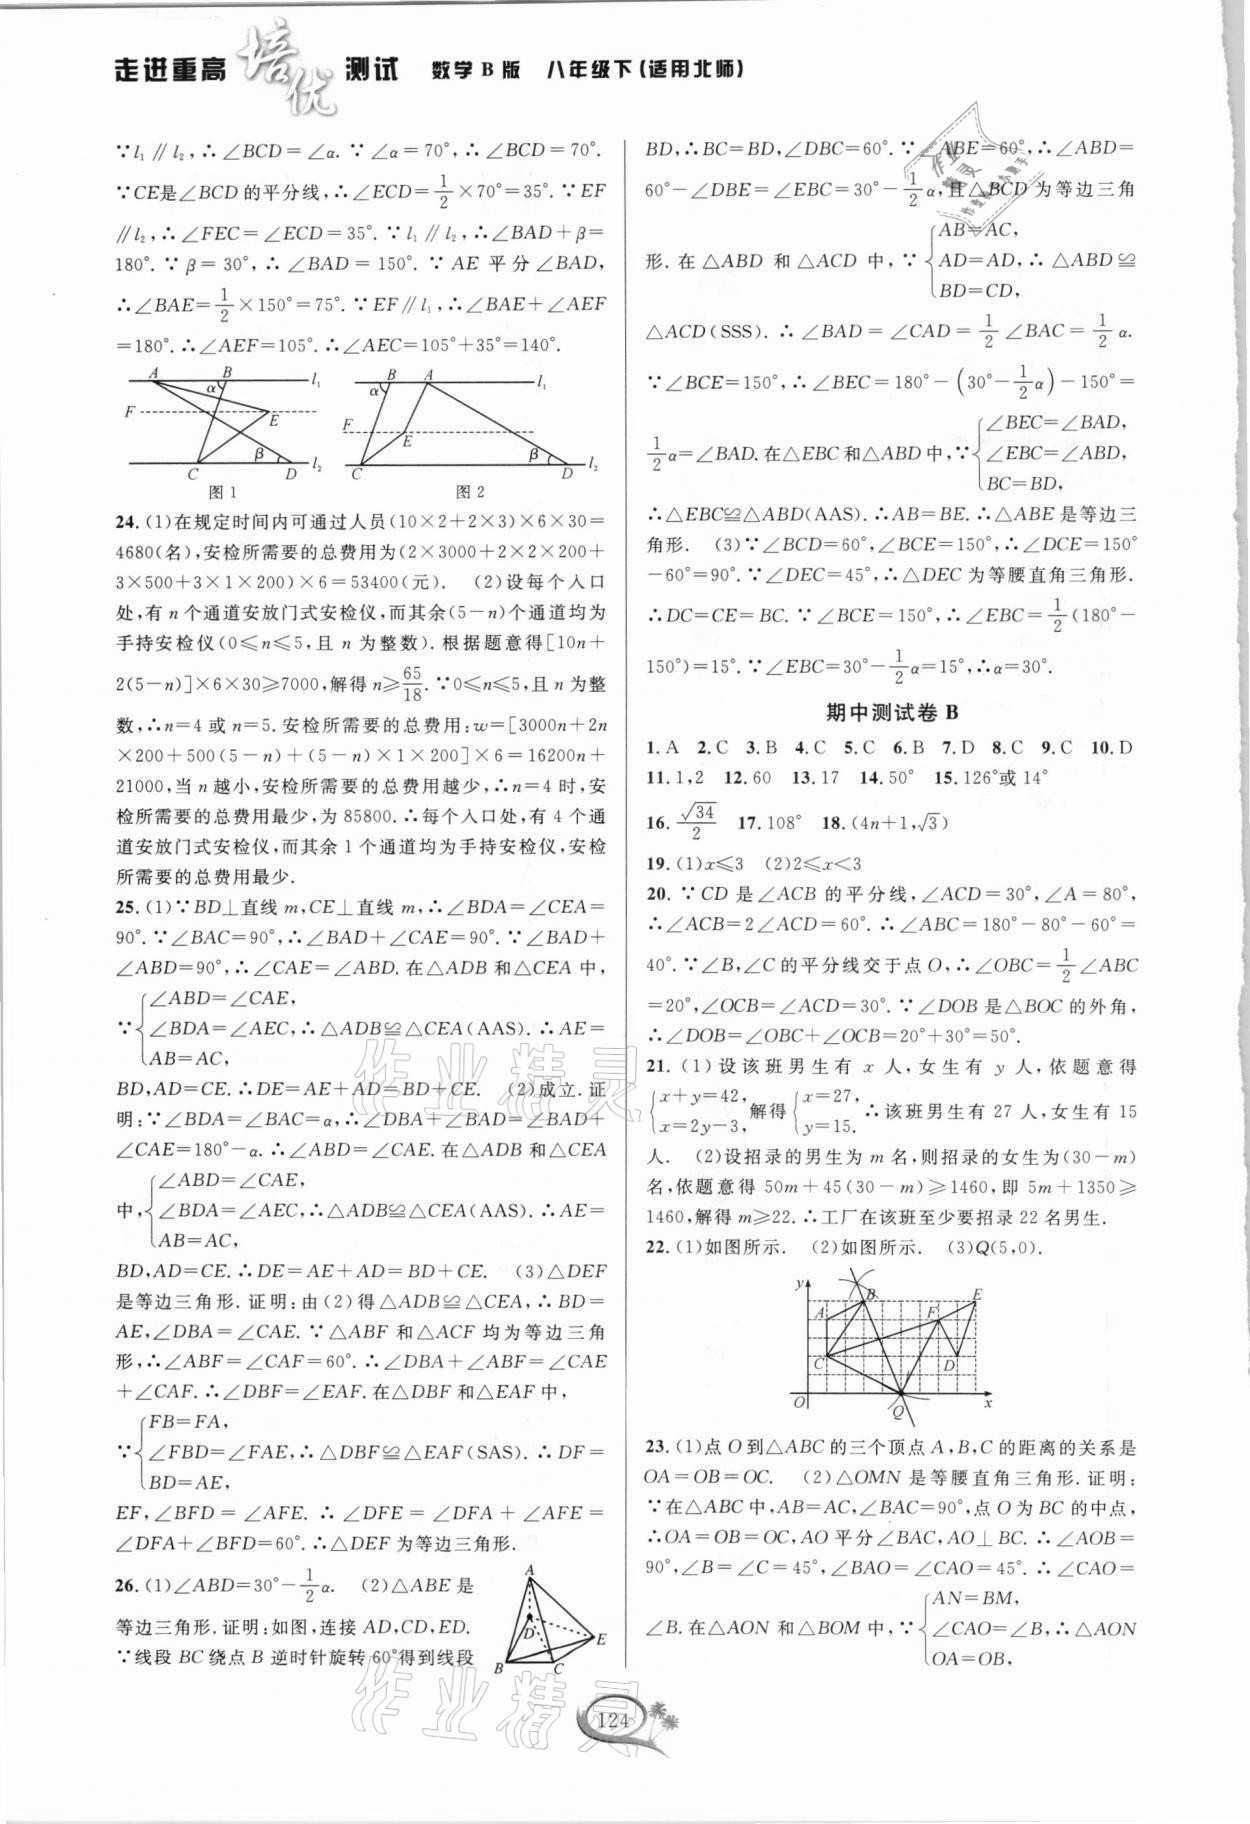 走进重高 培优 测试 数学B版 八年级下(适用北师)
∵l₁∥l₂,∴∠BCD=∠α.∵∠α=70°,∴∠BCD=70°.
∵CE是∠BCD的平分线,∴∠ECD=1/2×70°=35°.∵EF
∥l₂,∴∠FEC=∠ECD=35°.∵l₁∥l₂,∴∠BAD+β=
180°.∵β=30°,∴∠BAD=150°.∵AE平分∠BAD,
∴∠BAE=1/2×150°=75°.∵EF∥l₁,∴∠BAE+∠AEF
=180°.∴∠AEF=105°.∴∠AEC=105°+35°=140°.
A B α l₁ F E β C D l₂
图1
B A α l₁ F E β C D l₂
图2
24.(1)在规定时间内可通过人员(10×2+2×3)×6×30=
4680(名),安检所需要的总费用为(2×3000+2×2×200+
3×500+3×1×200)×6=53400(元). (2)设每个入口
处,有n个通道安放门式安检仪,而其余(5-n)个通道均为
手持安检仪(0≤n≤5,且n为整数).根据题意得[10n+
2(5-n)]×6×30≥7000,解得n≥65/18.∵0≤n≤5,且n为整
数,∴n=4或n=5.安检所需要的总费用:w=[3000n+2n
×200+500(5-n)+(5-n)×1×200]×6=16200n+
21000,当n越小,安检所需要的总费用越少,∴n=4时,安
检所需要的总费用最少,为85800.∴每个入口处,有4个通
道安放门式安检仪,而其余1个通道均为手持安检仪,安检
所需要的总费用最少.
25.(1)∵BD⊥直线m,CE⊥直线m,∴∠BDA=∠CEA=
90°.∵∠BAC=90°,∴∠BAD+∠CAE=90°.∵∠BAD+
∠ABD=90°,∴∠CAE=∠ABD.在△ADB和△CEA中,
∠ABD=∠CAE,
∵{∠BDA=∠AEC,∴△ADB≌△CEA(AAS).∴AE=
AB=AC,
BD,AD=CE.∴DE=AE+AD=BD+CE. (2)成立.证
明:∵∠BDA=∠BAC=α,∴∠DBA+∠BAD=∠BAD+
∠CAE=180°-α.∴∠ABD=∠CAE.在△ADB和△CEA
∠ABD=∠CAE,
中,{∠BDA=∠AEC,∴△ADB≌△CEA(AAS).∴AE=
AB=AC,
BD,AD=CE.∴DE=AE+AD=BD+CE. (3)△DEF
是等边三角形.证明:由(2)得△ADB≌△CEA,∴BD=
AE,∠DBA=∠CAE.∵△ABF和△ACF均为等边三角
形,∴∠ABF=∠CAF=60°.∴∠DBA+∠ABF=∠CAE
+∠CAF.∴∠DBF=∠EAF.在△DBF和△EAF中,
FB=FA,
∵{∠FBD=∠FAE,∴△DBF≌△EAF(SAS).∴DF=
BD=AE,
EF,∠BFD=∠AFE.∴∠DFE=∠DFA+∠AFE=
∠DFA+∠BFD=60°.∴△DEF为等边三角形.
26.(1)∠ABD=30°-1/2α. (2)△ABE是
等边三角形.证明:如图,连接AD,CD,ED.
∵线段BC绕点B逆时针旋转60°得到线段
A D E B C
BD,∴BC=BD,∠DBC=60°.∵∠ABE=60°,∴∠ABD=
60°-∠DBE=∠EBC=30°-1/2α,且△BCD为等边三角
形.在△ABD和△ACD中,∵{AB=AC,
AD=AD,∴△ABD≌
BD=CD,
△ACD(SSS).∴∠BAD=∠CAD=1/2∠BAC=1/2α.
∵∠BCE=150°,∴∠BEC=180°-(30°-1/2α)-150°=
1/2α=∠BAD.在△EBC和△ABD中,∵{∠BEC=∠BAD,
∠EBC=∠ABD,
BC=BD,
∴△EBC≌△ABD(AAS).∴AB=BE.∴△ABE是等边三
角形. (3)∵∠BCD=60°,∠BCE=150°,∴∠DCE=150°
-60°=90°.∵∠DEC=45°,∴△DEC为等腰直角三角形.
∴DC=CE=BC.∵∠BCE=150°,∴∠EBC=1/2(180°-
150°)=15°.∵∠EBC=30°-1/2α=15°,∴α=30°.
期中测试卷B
1.A 2.C 3.B 4.C 5.C 6.B 7.D 8.C 9.C 10.D
11.1,2 12.60 13.17 14.50° 15.126°或14°
16.√34/2 17.108° 18.(4n+1,√3)
19.(1)x≤3 (2)2≤x<3
20.∵CD是∠ACB的平分线,∠ACD=30°,∠A=80°,
∴∠ACB=2∠ACD=60°.∴∠ABC=180°-80°-60°=
40°.∵∠B,∠C的平分线交于点O,∴∠OBC=1/2∠ABC
=20°,∠OCB=∠ACD=30°.∵∠DOB是△BOC的外角,
∴∠DOB=∠OBC+∠OCB=20°+30°=50°.
21.(1)设该班男生有x人,女生有y人,依题意得
{x+y=42, x=2y-3, 解得{x=27, y=15. ∴该班男生有27人,女生有15
人. (2)设招录的男生为m名,则招录的女生为(30-m)
名,依题意得50m+45(30-m)≥1460,即5m+1350≥
1460,解得m≥22.∴工厂在该班至少要招录22名男生.
22.(1)如图所示. (2)如图所示. (3)Q(5,0).
y B E A F C D O Q x
23.(1)点O到△ABC的三个顶点A,B,C的距离的关系是
OA=OB=OC. (2)△OMN是等腰直角三角形.证明:
∵在△ABC中,AB=AC,∠BAC=90°,点O为BC的中点,
∴OA=OB=OC,AO平分∠BAC,AO⊥BC.∴∠AOB=
90°,∠B=∠C=45°,∠BAO=∠CAO=45°.∴∠CAO=
∠B.在△AON和△BOM中,∵{AN=BM,
∠CAO=∠B,∴△AON
OA=OB,
124
作业精灵
作业精灵
作业精灵